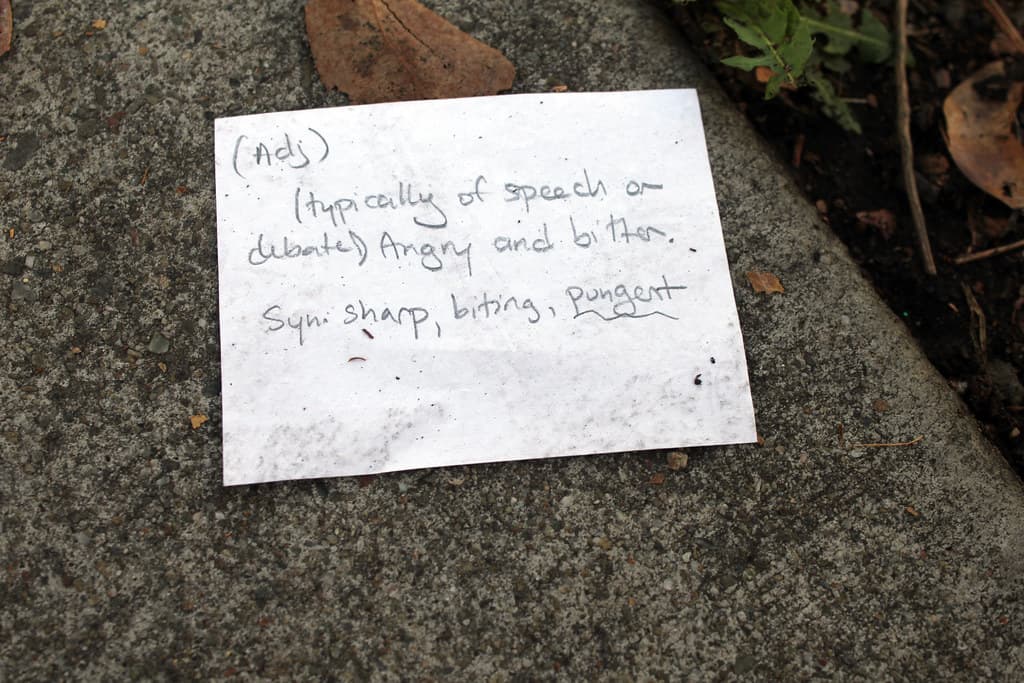 (Adj)
(typically of speech or
debate) Angry and bitter.
Syn: sharp, biting, pungent